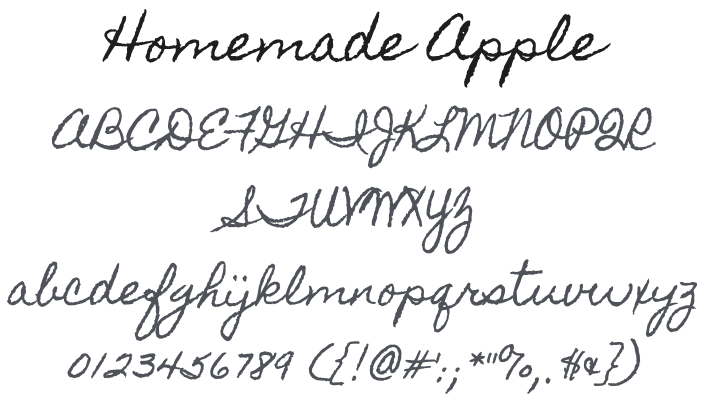 Homemade Apple
ABCDEFGHIJKLMNOPQR
STUVWXYZ
abcdefghijklmnopqrstuvwxyz
0123456789 ({!@#':; *"%,. $¢})